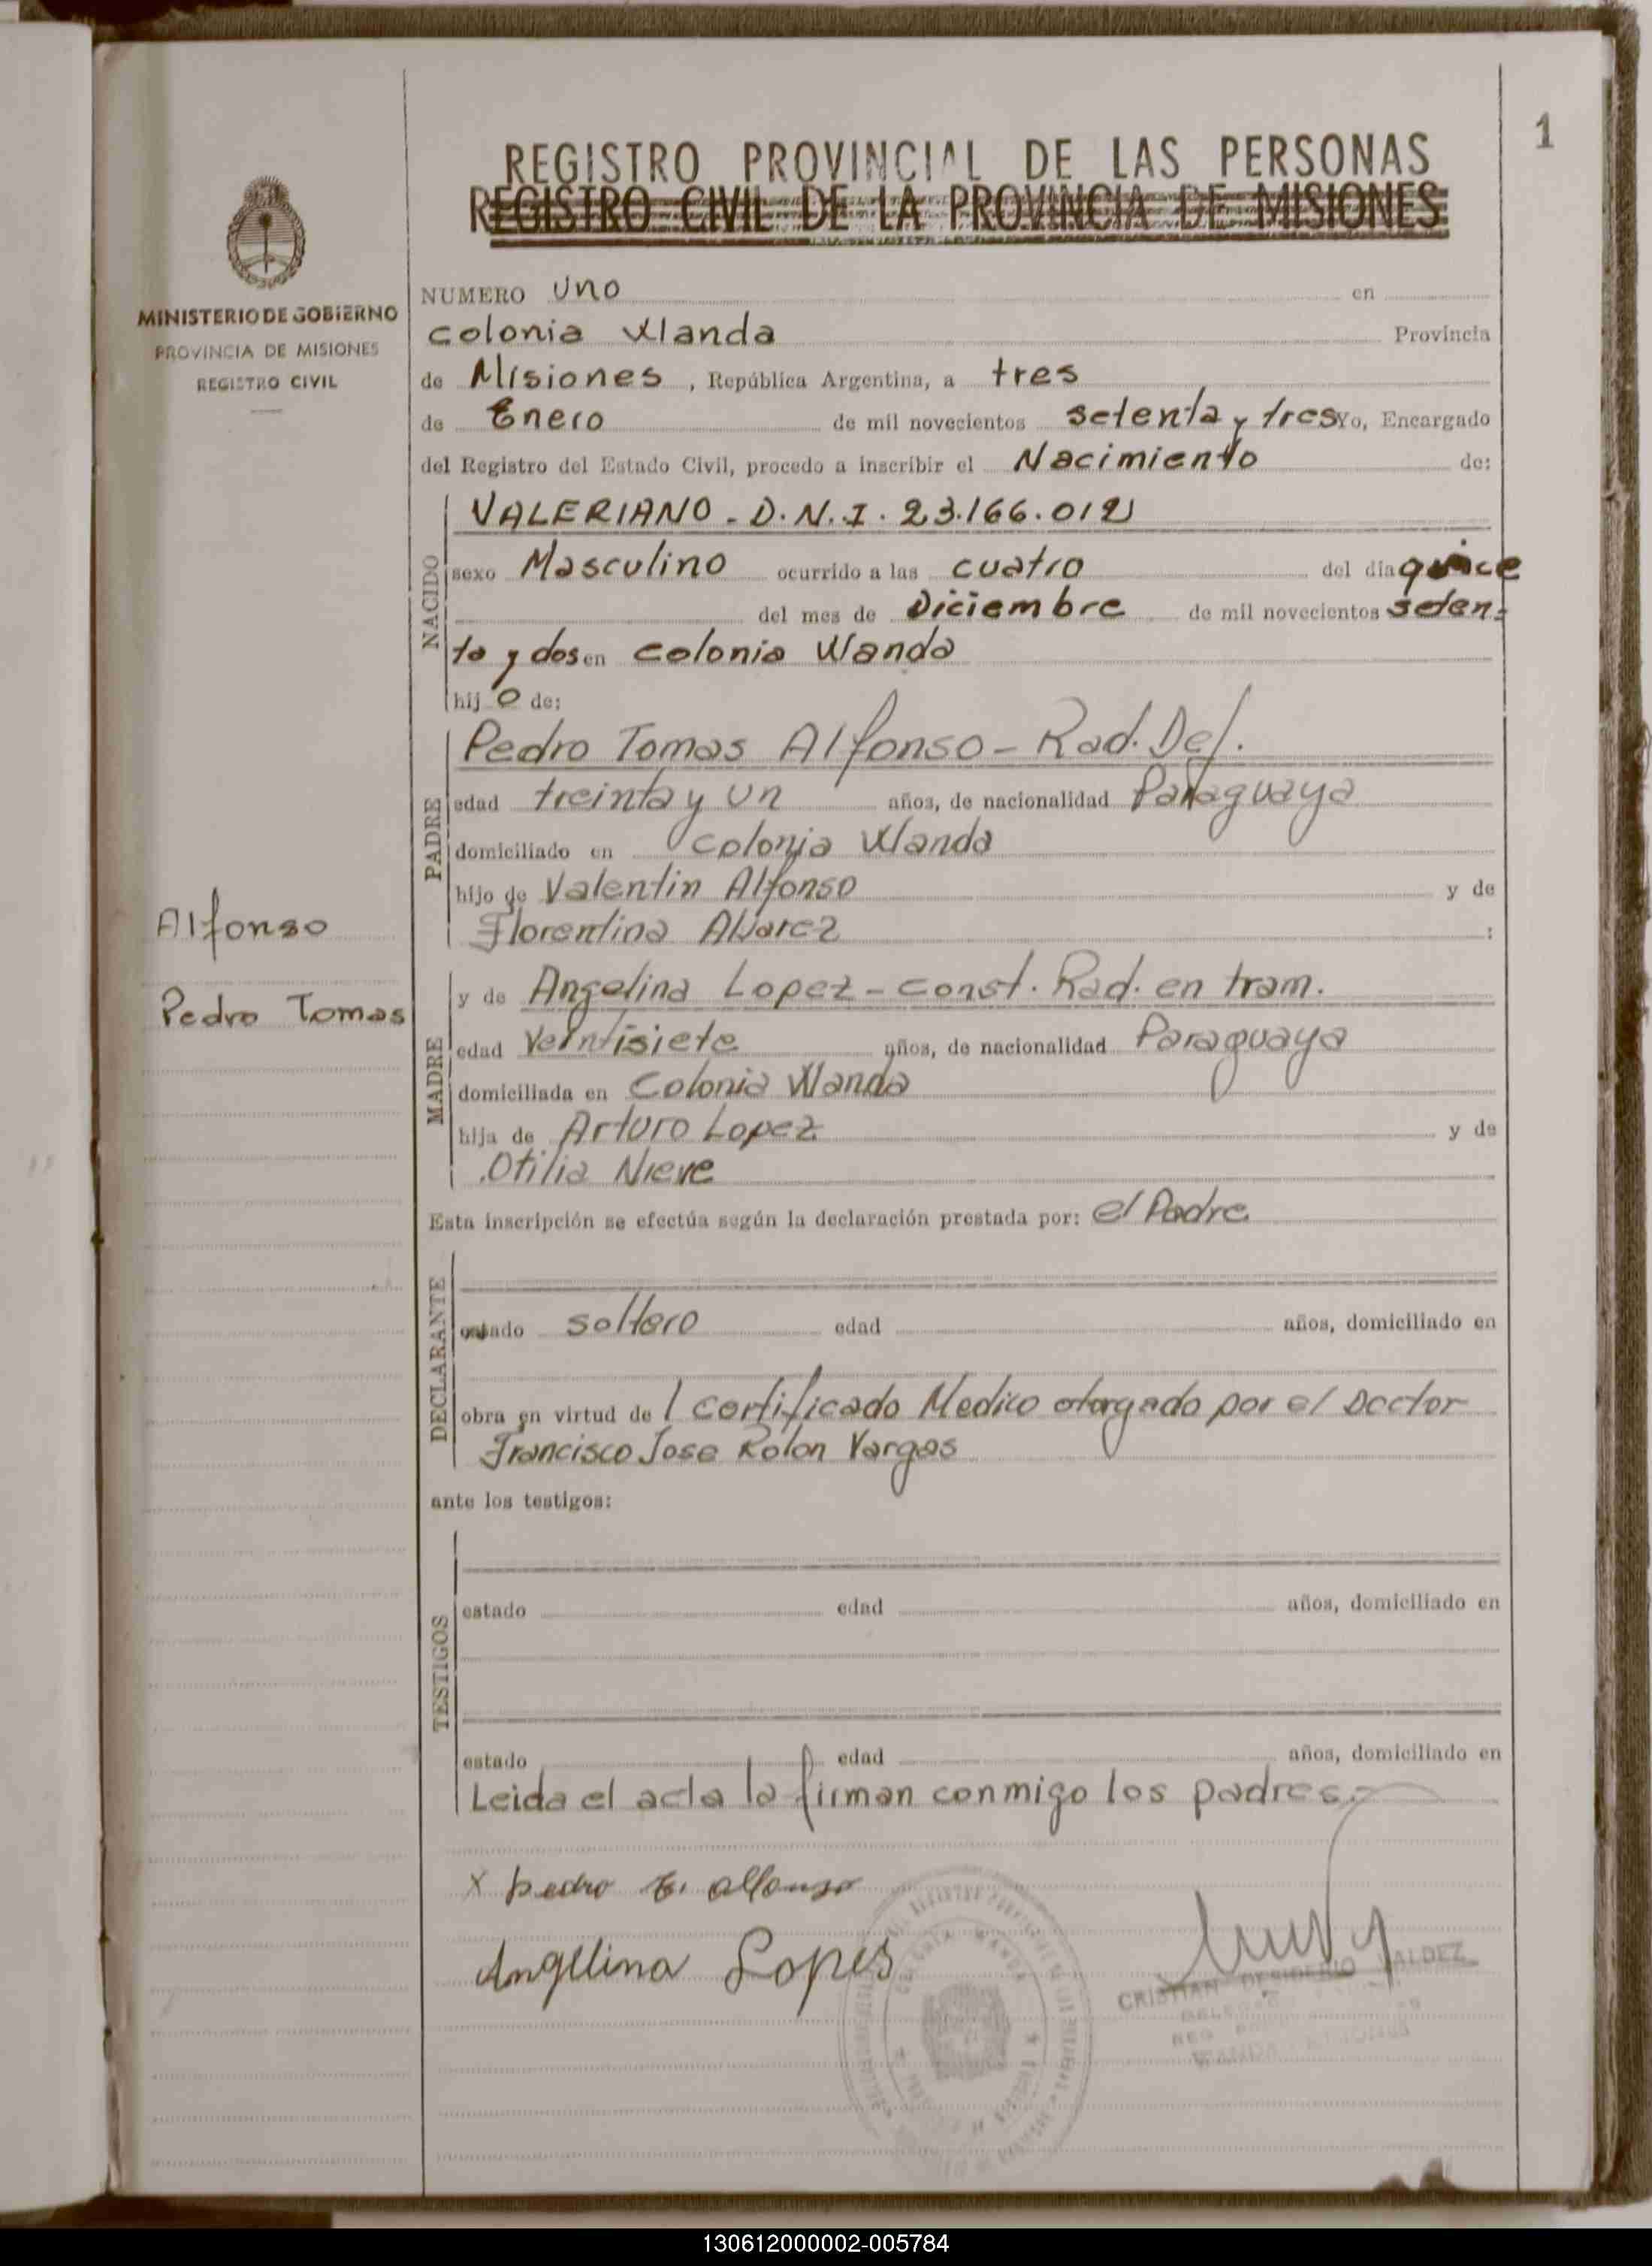 1
REGISTRO PROVINCIAL DE LAS PERSONAS
REGISTRO CIVIL DE LA PROVINCIA DE MISIONES
MINISTERIO DE GOBIERNO
PROVINCIA DE MISIONES
REGISTRO CIVIL
NUMERO Uno en
colonia Wanda Provincia
de Misiones, República Argentina, a tres
de Enero de mil novecientos setenta y tres Yo, Encargado
del Registro del Estado Civil, procedo a inscribir el Nacimiento de:
NACIDO
VALERIANO - D.N.I. 23.166.012
sexo Masculino ocurrido a las cuatro del día quince
del mes de Diciembre de mil novecientos seten-
ta y dos en colonia Wanda
hijo de:
PADRE
Pedro Tomas Alfonso - Rad. Def.
edad treinta y un años, de nacionalidad Paraguaya
domiciliado en Colonia Wanda
hijo de Valentin Alfonso y de
Florentina Alvarez :
Alfonso
Pedro Tomas
MADRE
y de Angelina Lopez - const. Rad. en tram.
edad Veintisiete años, de nacionalidad Paraguaya
domiciliada en Colonia Wanda
hija de Arturo Lopez y de
Otilia Nieve
Esta inscripción se efectúa según la declaración prestada por: el Padre
DECLARANTE
estado soltero edad años, domiciliado en
obra en virtud de 1 Certificado Medico otorgado por el Doctor
Francisco Jose Rolon Vargas
ante los testigos:
TESTIGOS
estado edad años, domiciliado en
estado edad años, domiciliado en
Leida el acta la firman conmigo los padres.-
x pedro t. alfonso
Angelina Lopes
CRISTIAN DESIDERIO VALDEZ
130612000002-005784